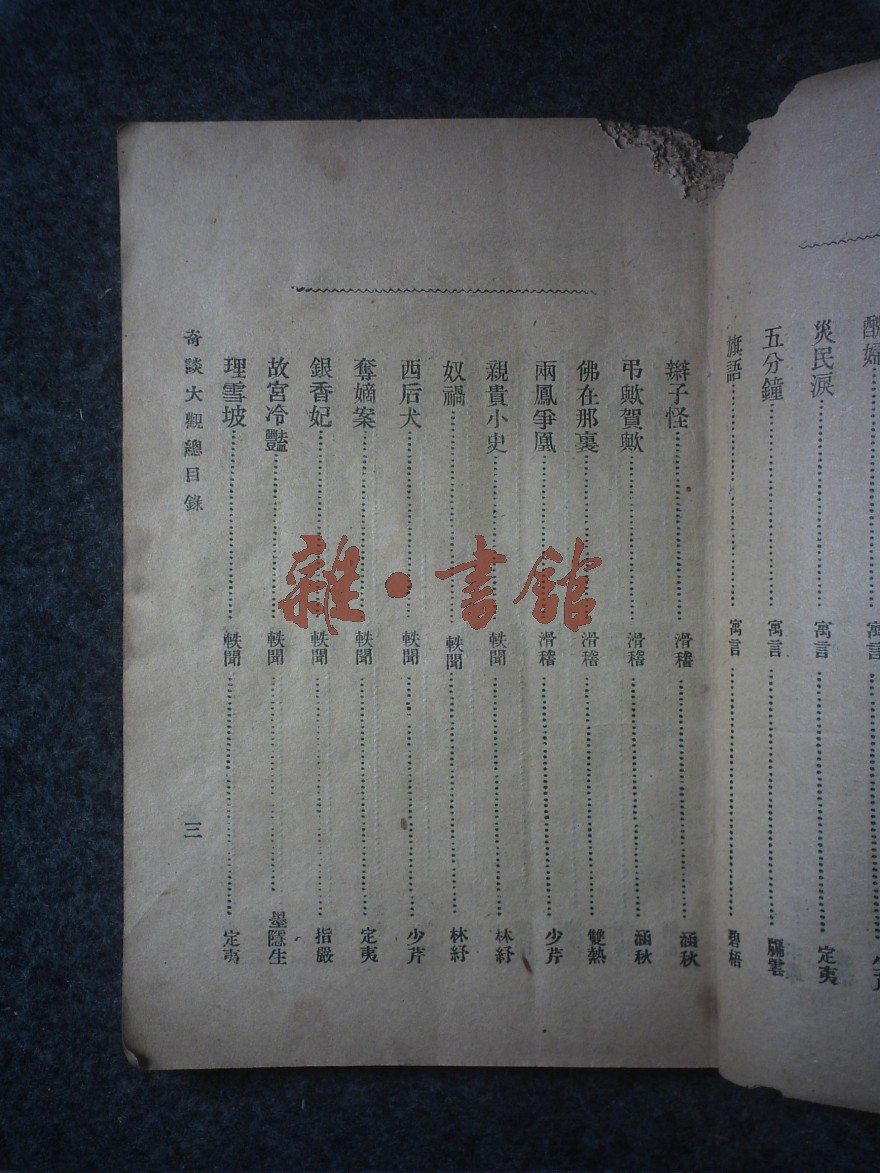 災民淚 寓言 定夷
五分鐘 寓言 牖雲
旗語 寓言 碧梧
辮子怪 滑稽 涵秋
弔歟賀歟 滑稽 涵秋
佛在那裏 滑稽 雙熱
兩鳳爭凰 滑稽 少芹
親貴小史 軼聞 林紓
奴禍 軼聞 林紓
西后犬 軼聞 少芹
奪嫡案 軼聞 定夷
銀香妃 軼聞 指嚴
故宮冷豔 軼聞 墨隱生
理雪坡 軼聞 定夷
奇談大觀總目錄 三
雜·書館